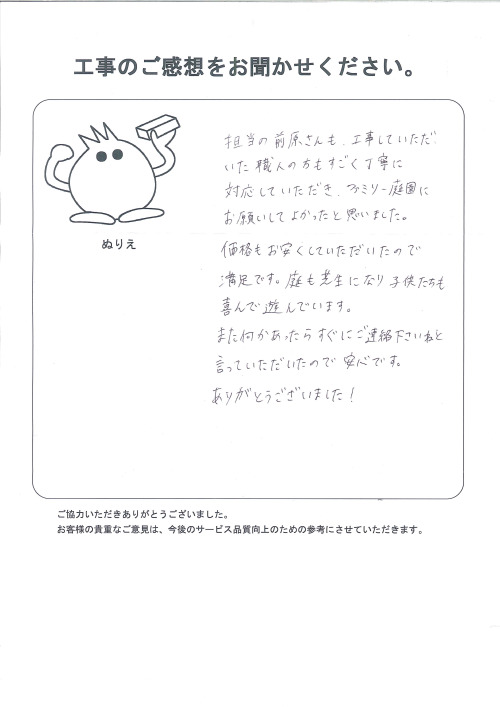 工事のご感想をお聞かせください。
担当の前原さんも、工事していただ
いた職人の方もすごく丁寧に
対応していただき、ファミリー庭園に
お願いしてよかったと思いました。
価格もお安くしていただいたので
満足です。庭も芝生になり子供たちも
喜んで遊んでいます。
また何かあったらすぐにご連絡下さいねと
言っていただいたので安心です。
ありがとうございました！
ぬりえ
ご協力いただきありがとうございました。
お客様の貴重なご意見は、今後のサービス品質向上のための参考にさせていただきます。